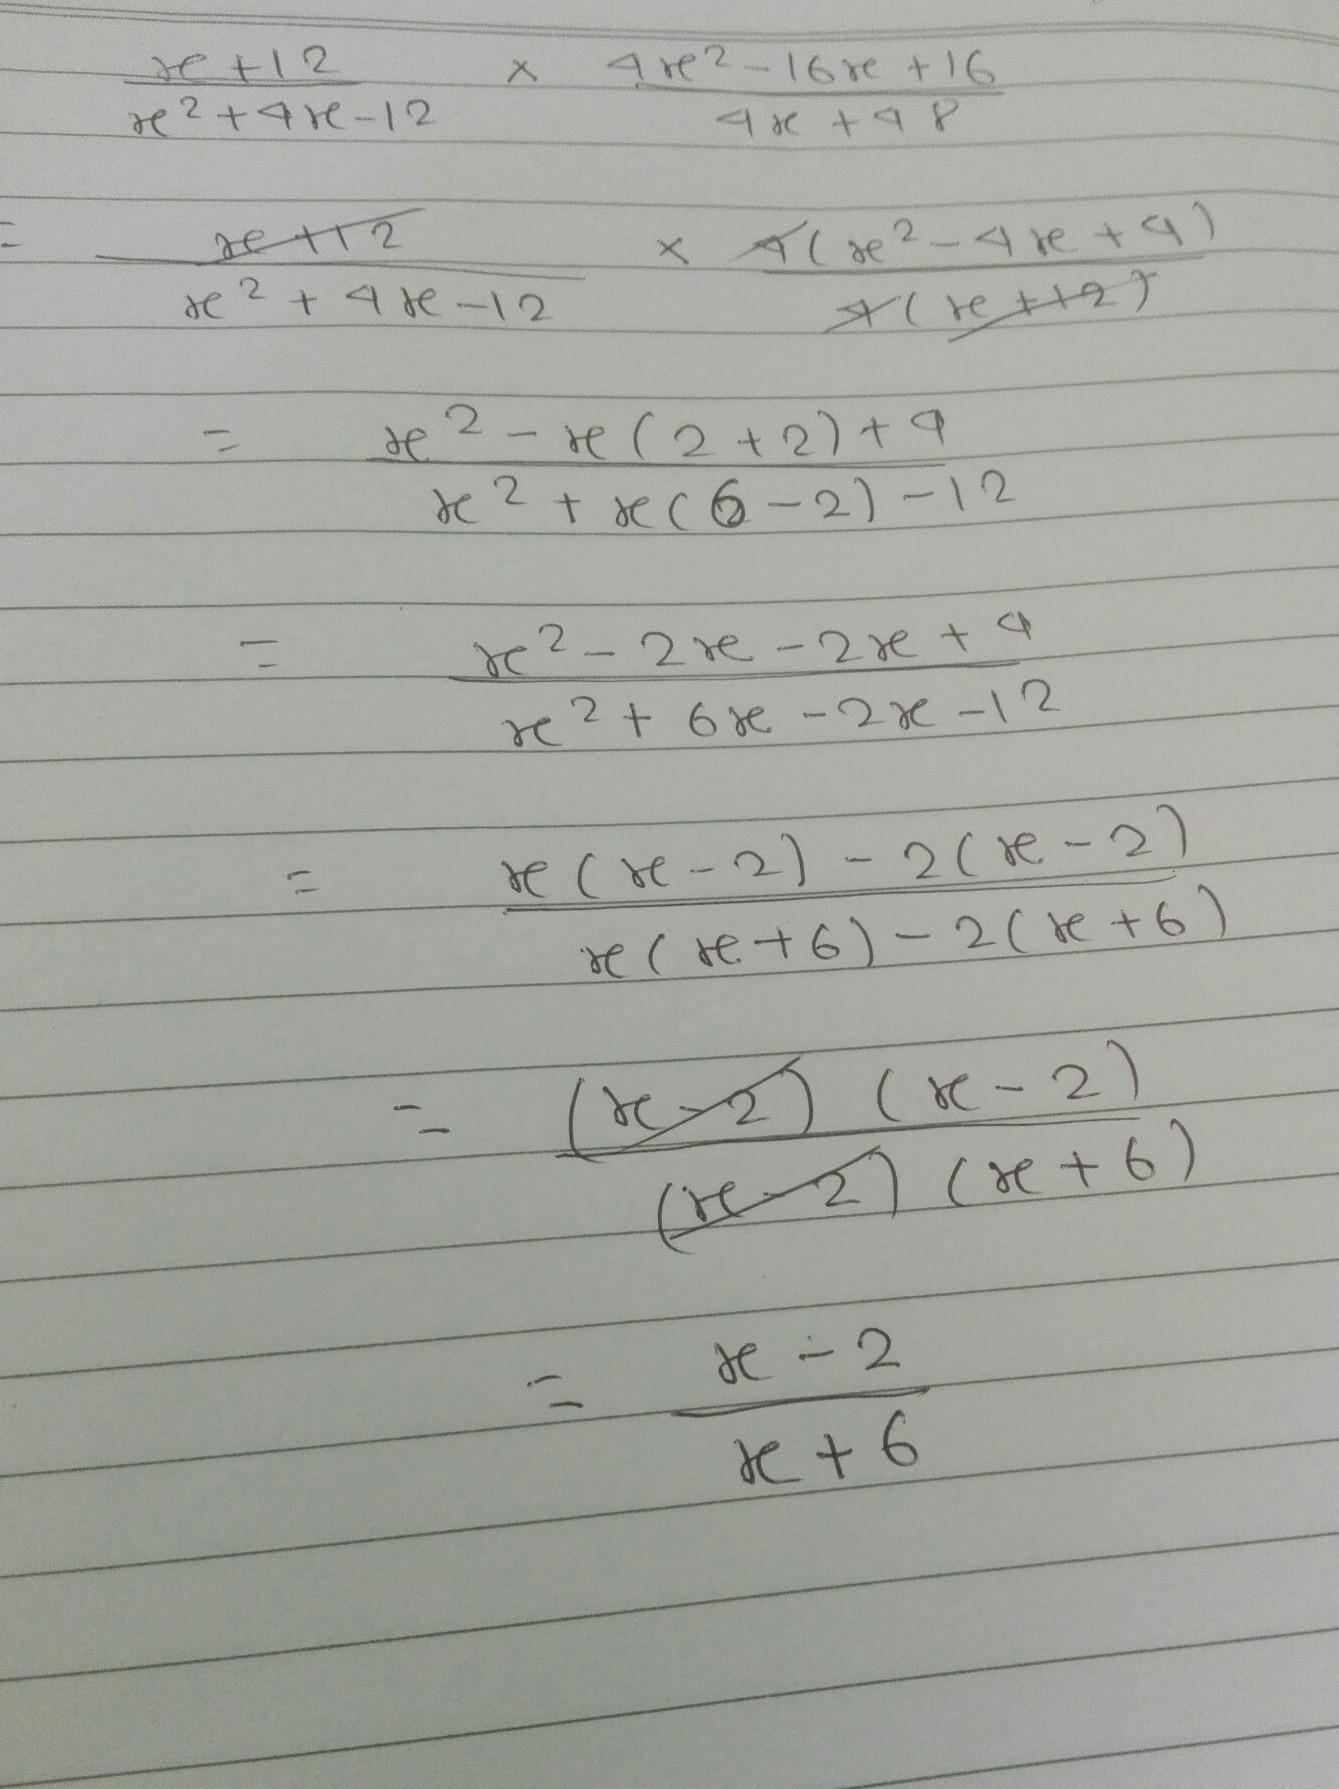 x+12 × 4x²-16x+16
x²+4x-12 4x+48
= x+12 × 4(x²-4x+4)
x²+4x-12 4(x+12)
= x²-x(2+2)+4
x²+x(6-2)-12
= x²-2x-2x+4
x²+6x-2x-12
= x(x-2)-2(x-2)
x(x+6)-2(x+6)
= (x-2)(x-2)
(x-2)(x+6)
= x-2
x+6